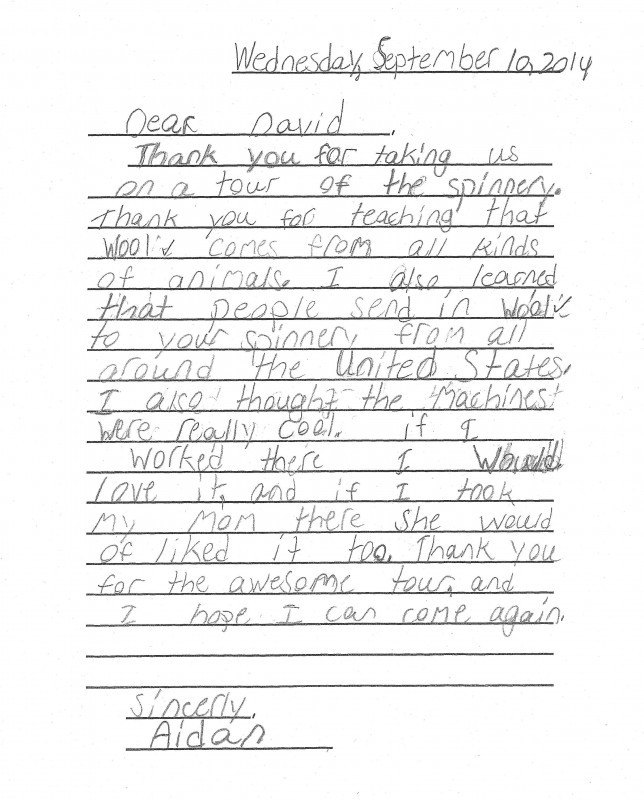 Wednesday, September 10, 2014
Dear David,
Thank you for taking us
on a tour of the spinnery.
Thank you for teaching that
wool comes from all kinds
of animals. I also learned
that people send in wool
to your spinnery from all
around the United States.
I also thought the machines
were really cool. if I
worked there I would
love it, and if I took
my mom there she would
of liked it too. Thank you
for the awesome tour, and
I hope I can come again.
Sincerly,
Aidan